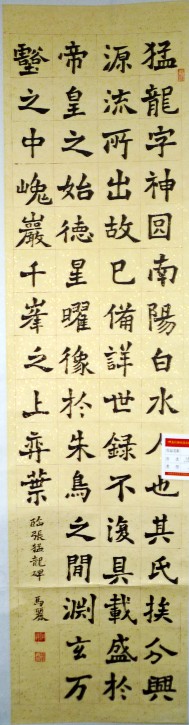 猛龍字神囧南陽白水人也其氏挨分興
源流所出故已備詳世録不復具載盛於
帝皇之始德星曜像於朱鳥之閒渊玄万
壑之中巍巖千峯之上弈葉
臨張猛龍碑 馬